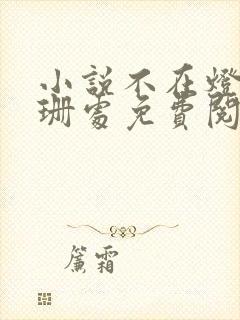 小說不在燈
珊處免費閱
簾霜